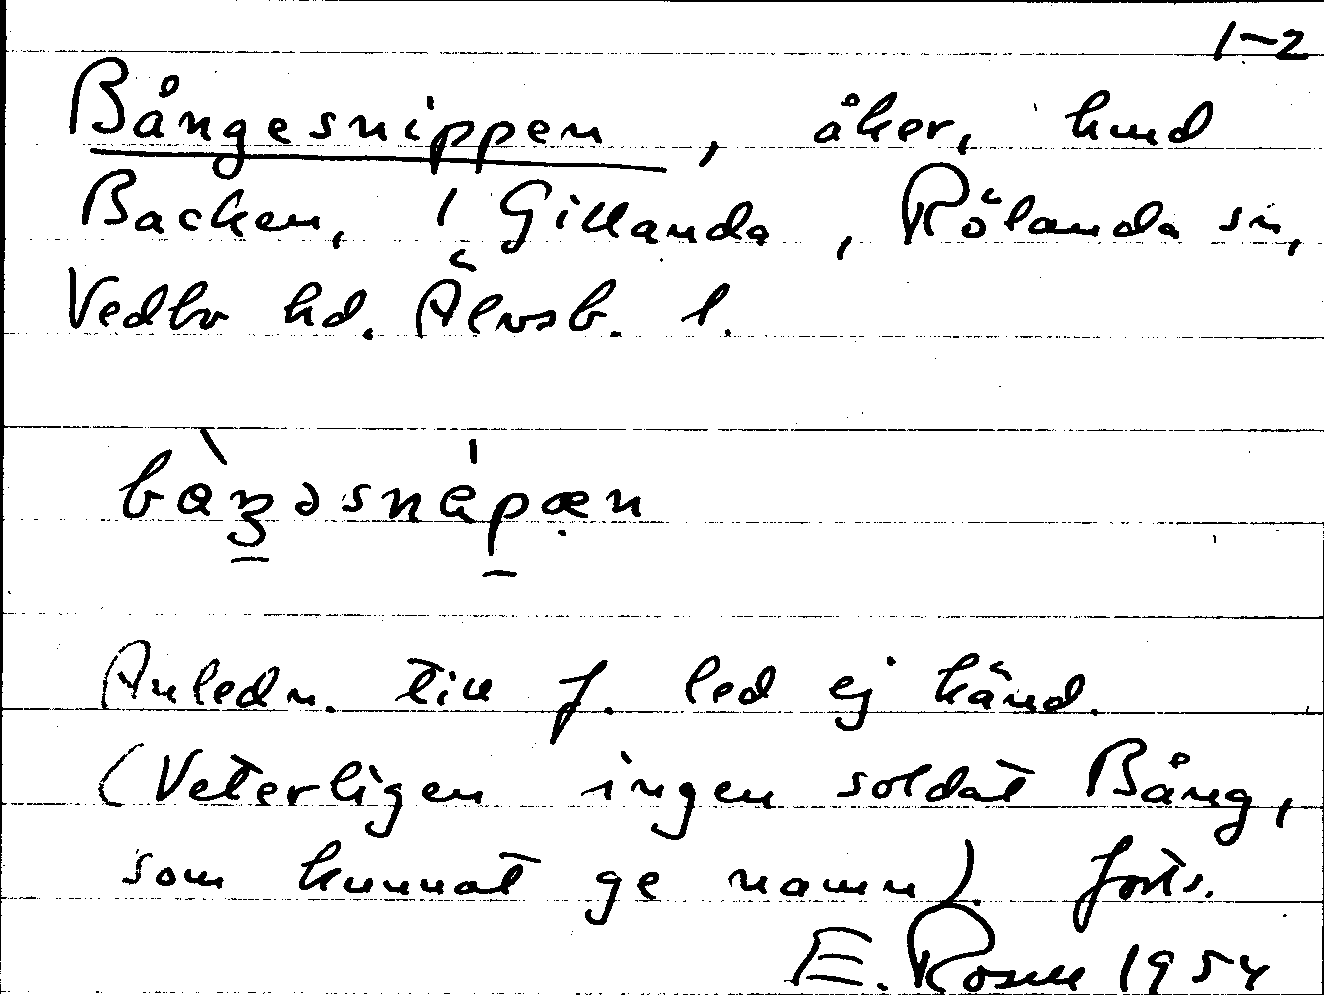 1-2
Bångesnippen, åker, hmd
Backen, 1 Gillanda, Rölanda sn,
Vedbo hd. Älvsb. l.
Anledn. till f. led ej känd.
(Veterligen ingen soldat Bång,
som kunnat ge namn). forts.
E. Rosell 1954